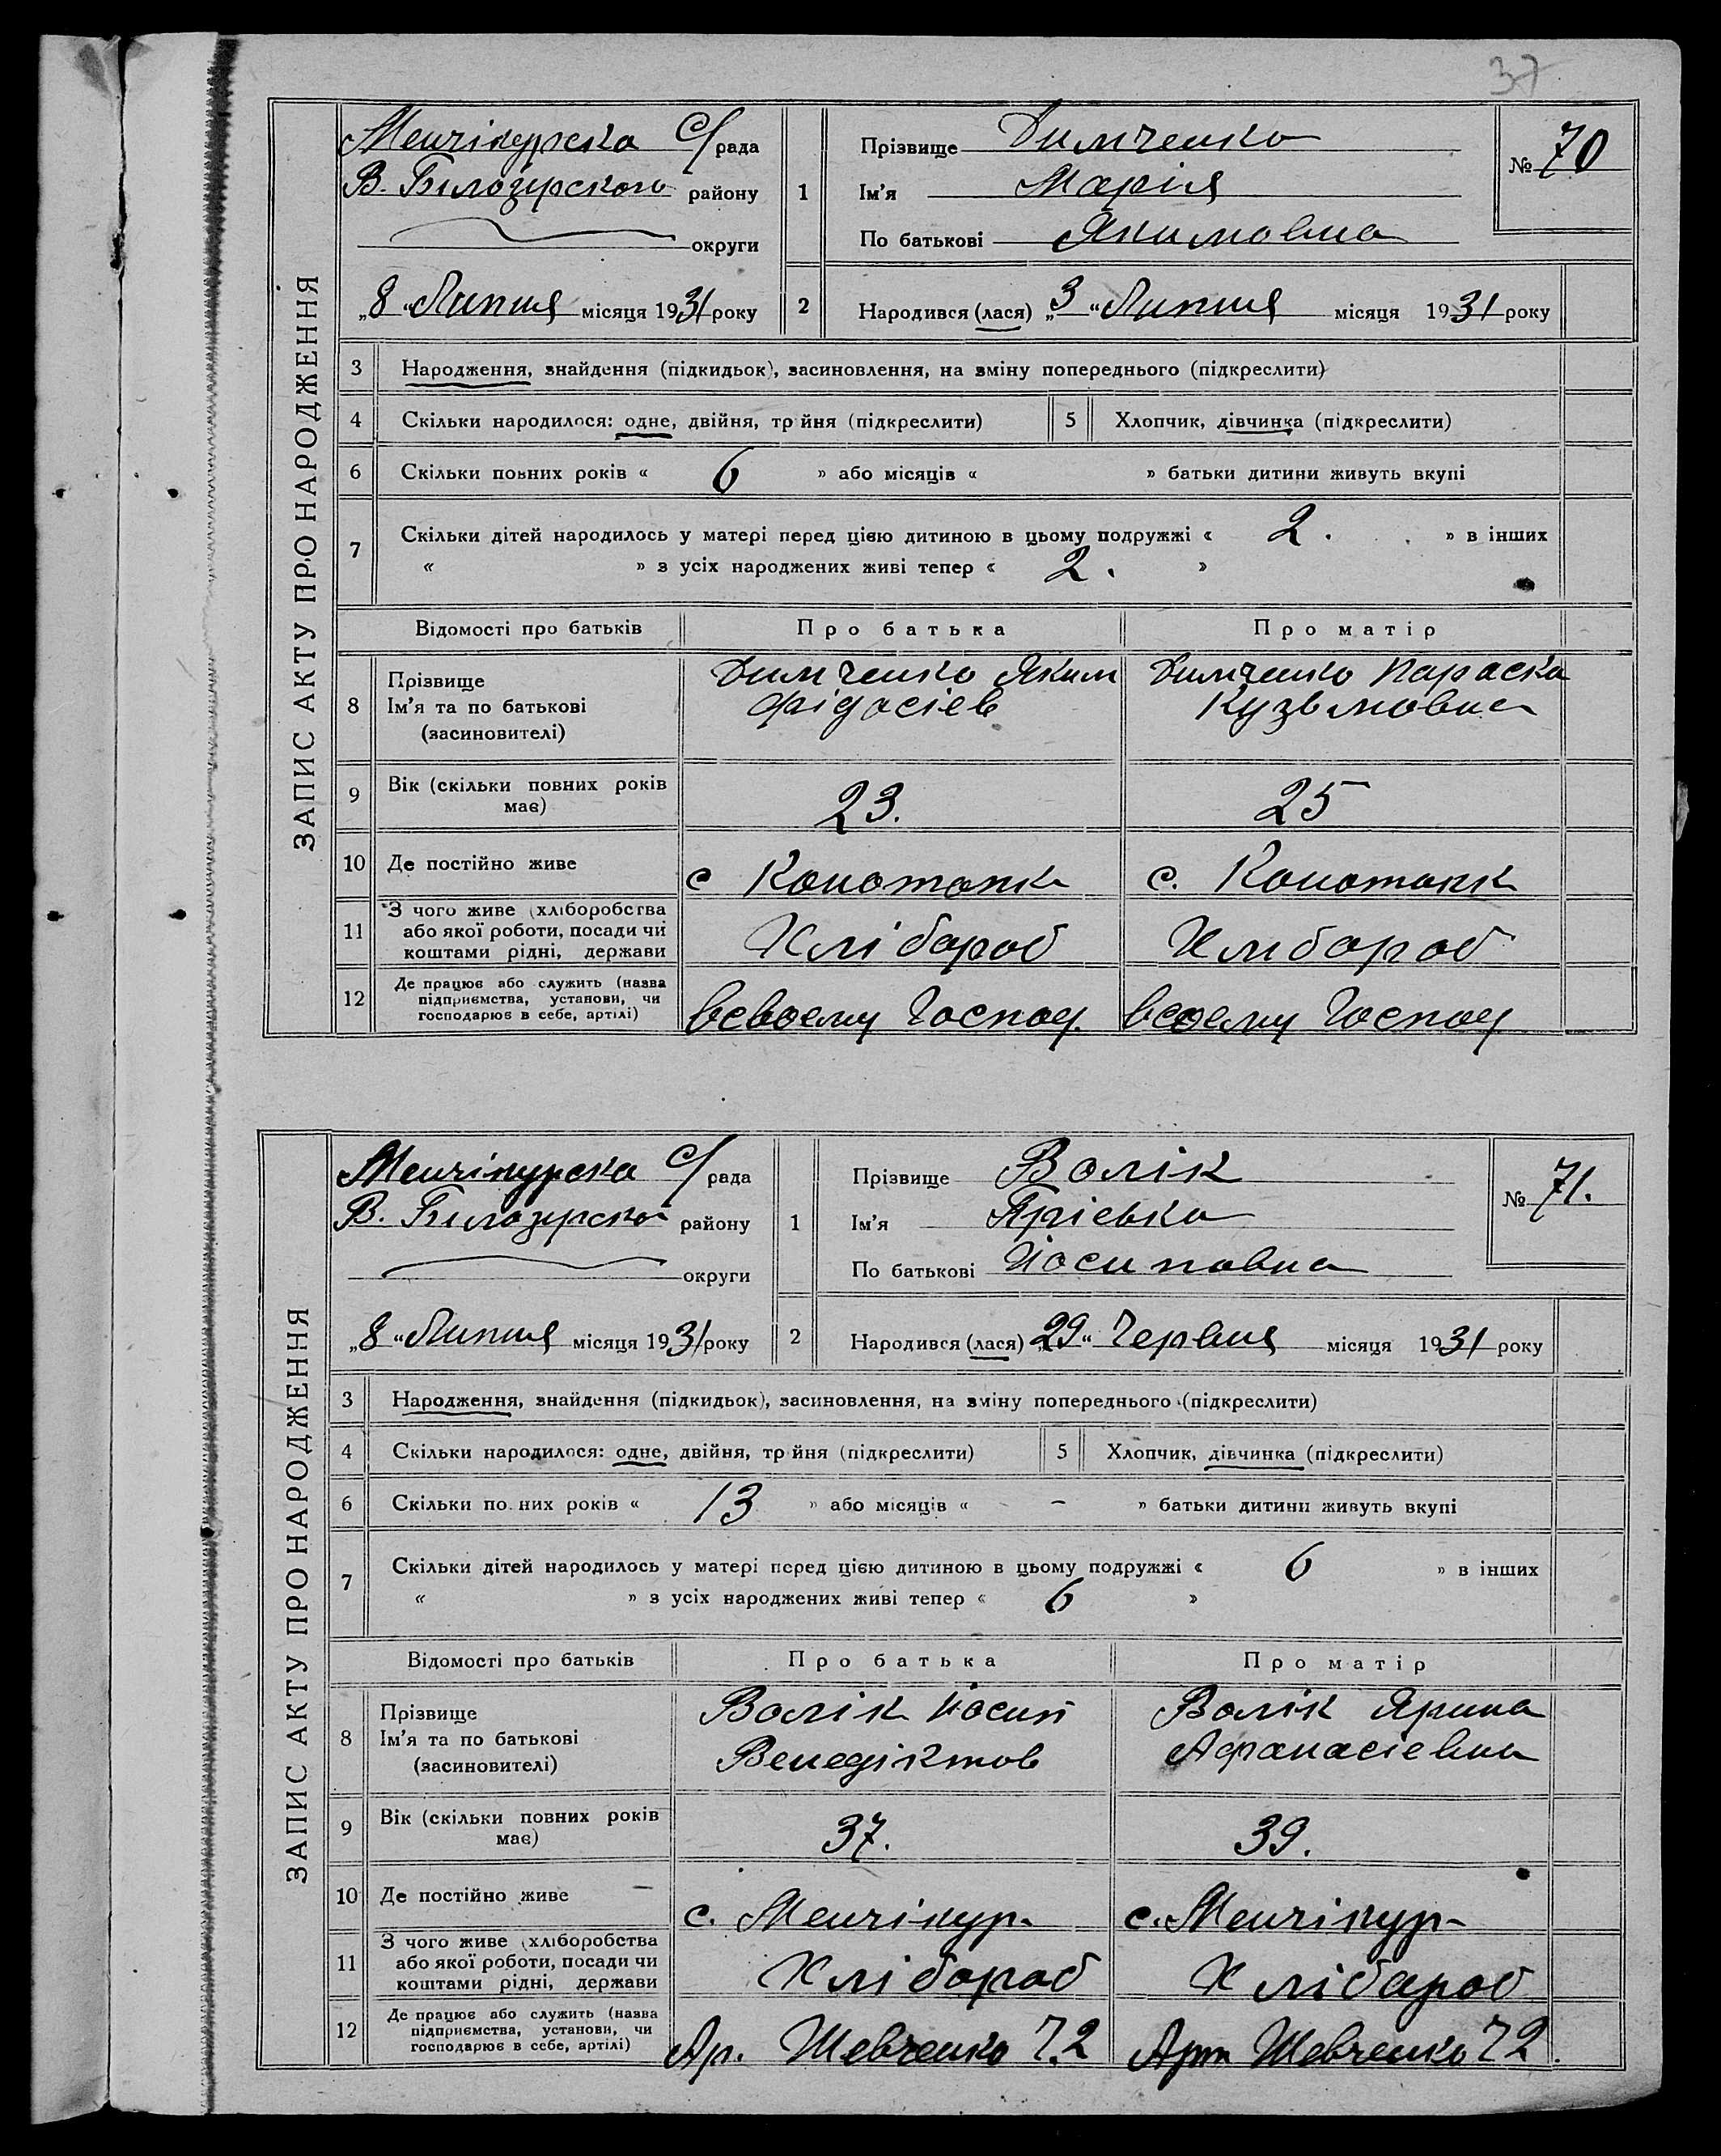 37
ЗАПИС АКТУ ПРО НАРОДЖЕННЯ
Менчікурска С/рада
В. Білозірского району
округи
„8“ Липня місяця 1931 року
1 Прізвище Димченко
Ім'я Марія
По батькові Якимовна
№ 70
2 Народився (лася) „3“ Липня місяця 1931 року
3 Народження, знайдення (підкидьок), засиновлення, на зміну попереднього (підкреслити)
4 Скільки народилося: одне, двійня, тр йня (підкреслити) 5 Хлопчик, дівчинка (підкреслити)
6 Скільки повних років « 6 » або місяців « » батьки дитини живуть вкупі
7 Скільки дітей народилось у матері перед цією дитиною в цьому подружжі « 2. » в інших
« » з усіх народжених живі тепер « 2. »
Відомості про батьків Про батька Про матір
8 Прізвище Ім'я та по батькові (засиновителі)
Димченко Яким
Фідосіев
Димченко Параска
Кузьмовна
9 Вік (скільки повних років має) 23. 25
10 Де постійно живе с Конотопк с. Конотопк
11 З чого живе (хліборобства або якої роботи, посади чи коштами рідні, держави Хлібороб Хлібороб
12 Де працює або служить (назва підприємства, установи, чи господарює в себе, артілі) всвоему Господ. всвоему Господ
ЗАПИС АКТУ ПРО НАРОДЖЕННЯ
Менчікурска С/рада
В. Білозірскo району
округи
„8“ Липня місяця 1931 року
1 Прізвище Волік
Ім'я
По батькові Йосиповна
№ 71.
2 Народився (лася) „29“ Червня місяця 1931 року
3 Народження, знайдення (підкидьок), засиновлення, на зміну попереднього (підкреслити)
4 Скільки народилося: одне, двійня, тр йня (підкреслити) 5 Хлопчик, дівчинка (підкреслити)
6 Скільки по них років « 13 » або місяців « – » батьки дитини живуть вкупі
7 Скільки дітей народилось у матері перед цією дитиною в цьому подружжі « 6 » в інших
« » з усіх народжених живі тепер « 6 »
Відомості про батьків Про батька Про матір
8 Прізвище Ім'я та по батькові (засиновителі)
Волік Йосип
Венедіктов
Волік Ярина
Афанасіевна
9 Вік (скільки повних років має) 37. 39.
10 Де постійно живе с. Менчікур- с. Менчікур-
11 З чого живе (хліборобства або якої роботи, посади чи коштами рідні, держави Хлібороб Хлібороб
12 Де працює або служить (назва підприємства, установи, чи господарює в себе, артілі) Ар. Шевченко 72 Арт Шевченко 72.